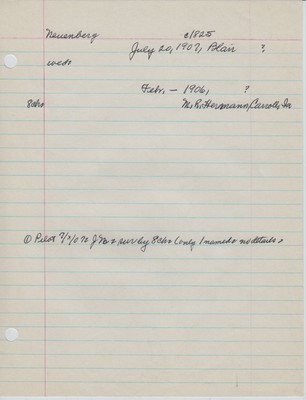 Neuenberg c1825
July 20, 1907, Blair ?
wed
Febr. — 1906, ?
8chr M. R. Hermann, Carroll, Ia
① Pilot 7/ / 07 J N surv by 8ch (only 1 named no details